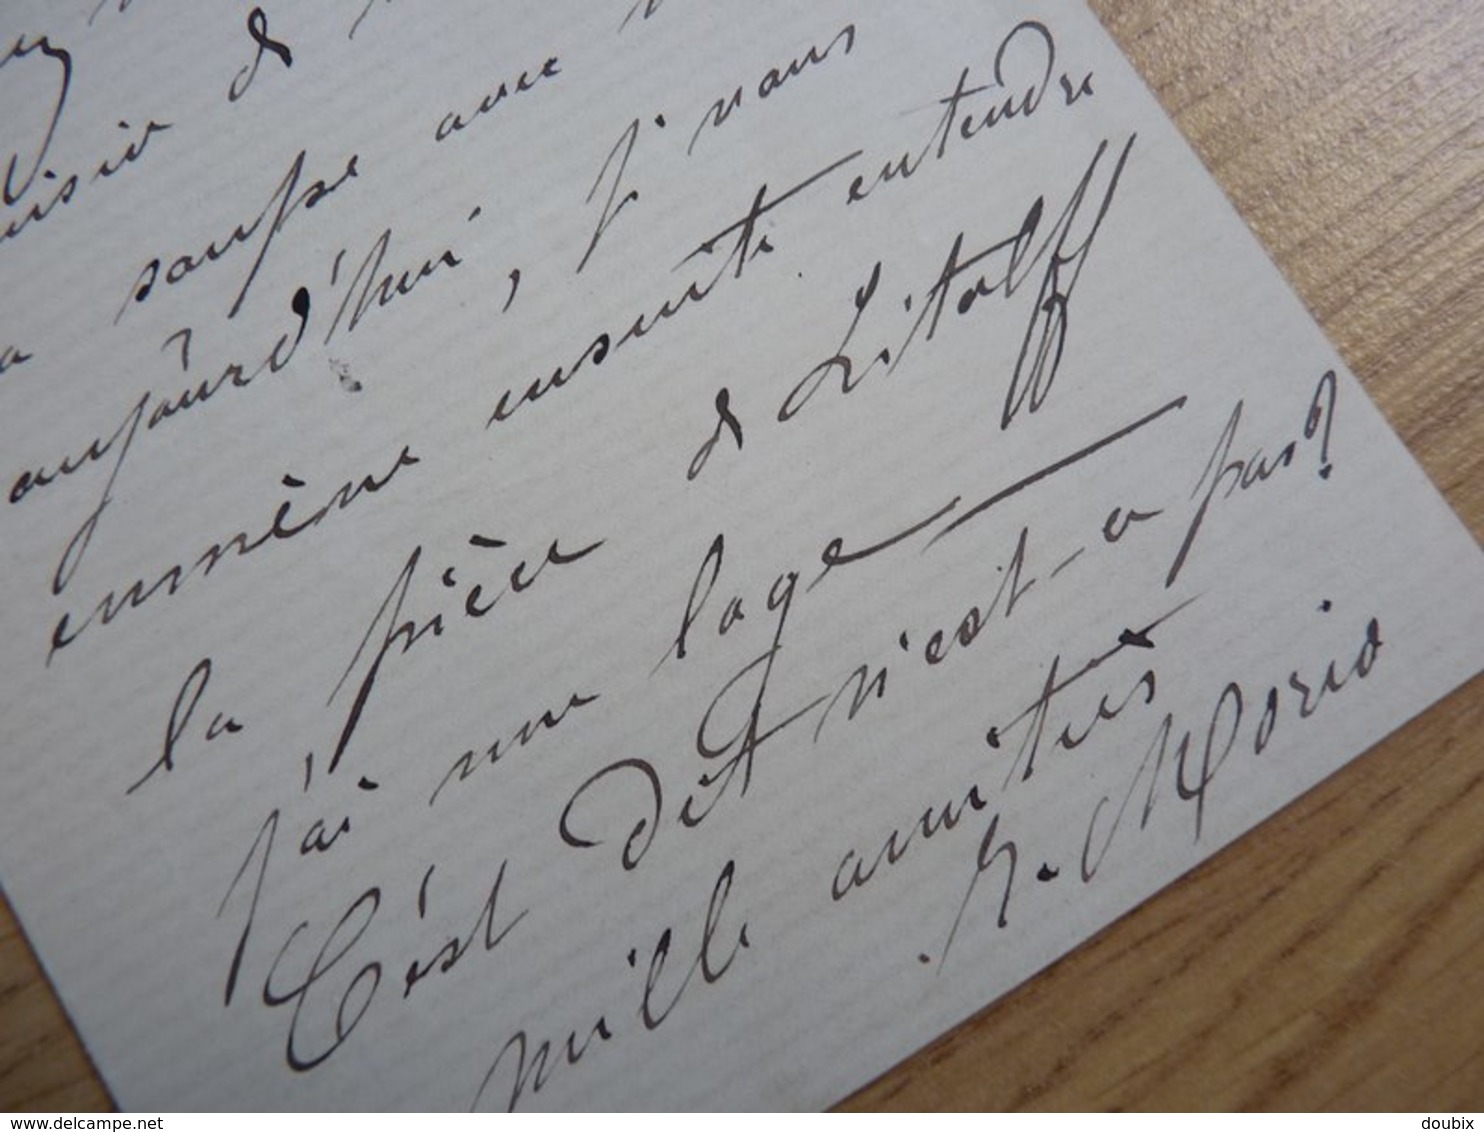 de
soupe avec
aujourd'hui, je vous
emmène ensuite entendre
la pièce de Litolff
j'ai une loge —
C'est dit n'est-ce pas?
mille amitiés
Morio
delcampe.net
doubix